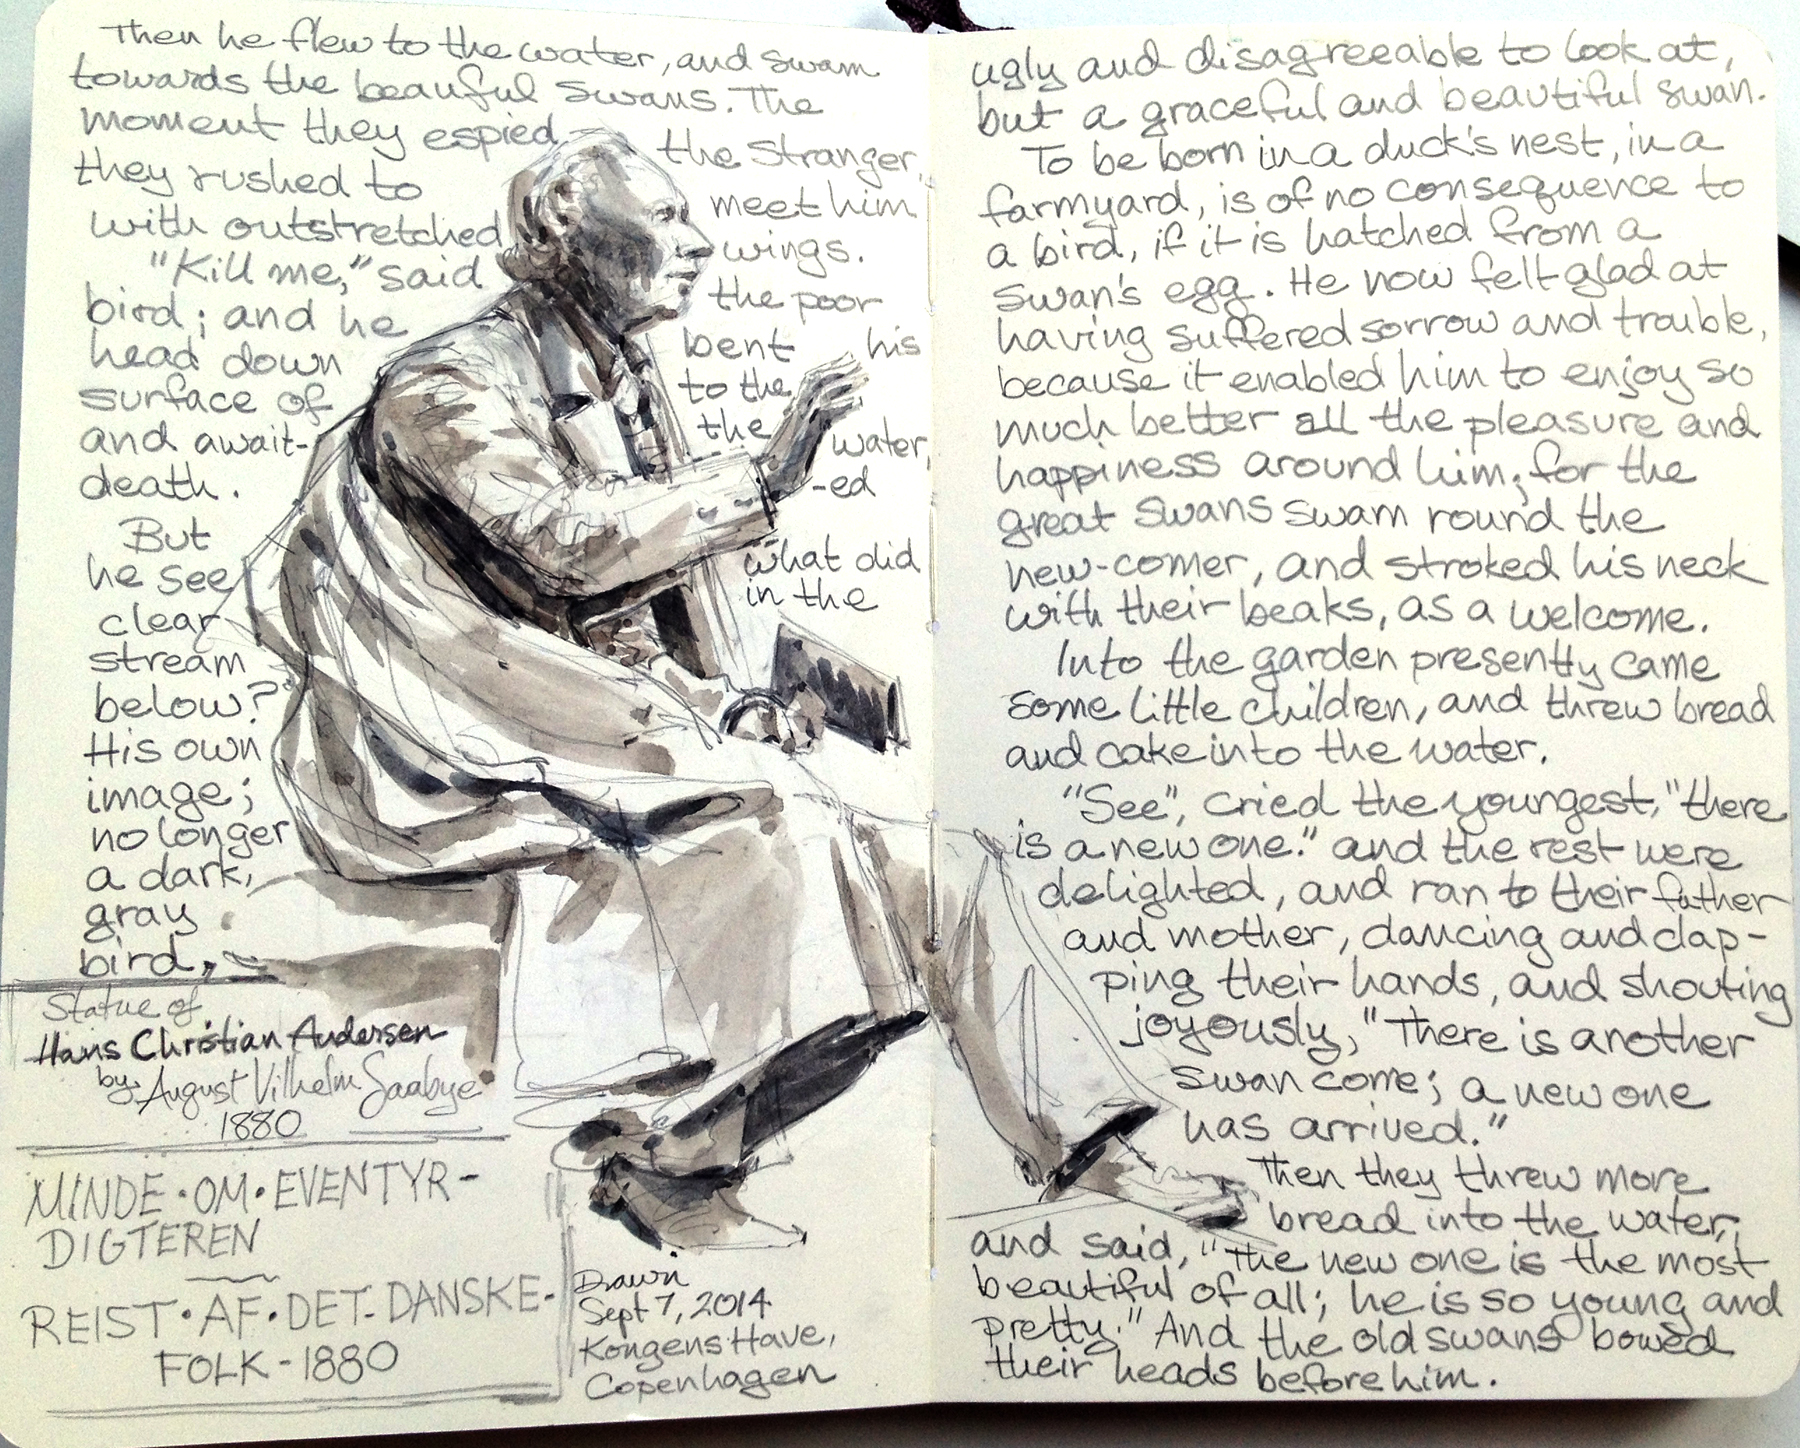 Then he flew to the water, and swam
towards the beauful swans. The
moment they espied the stranger,
they rushed to meet him
with outstretched wings.
"Kill me," said the poor
bird; and he bent his
head down to the
surface of the water,
and await- -ed
death.
But what did
he see in the
clear
stream
below?
His own
image;
no longer
a dark,
gray
bird,
Statue of
Hans Christian Andersen
by August Vilhelm Saabye
1880
MINDE · OM · EVENTYR-
DIGTEREN
REIST · AF · DET - DANSKE -
FOLK - 1880
Drawn
Sept 7, 2014
Kongens Have,
Copenhagen
ugly and disagreeable to look at,
but a graceful and beautiful swan.
To be born in a duck's nest, in a
farmyard, is of no consequence to
a bird, if it is hatched from a
swan's egg. He now felt glad at
having suffered sorrow and trouble,
because it enabled him to enjoy so
much better all the pleasure and
happiness around him; for the
great swans swam round the
new-comer, and stroked his neck
with their beaks, as a welcome.
Into the garden presently came
some little children, and threw bread
and cake into the water.
"See", cried the youngest, "there
is a new one." and the rest were
delighted, and ran to their father
and mother, dancing and clap-
ping their hands, and shouting
joyously, "There is another
swan come; a new one
has arrived."
Then they threw more
bread into the water,
and said, "The new one is the most
beautiful of all; he is so young and
pretty." And the old swans bowed
their heads before him.